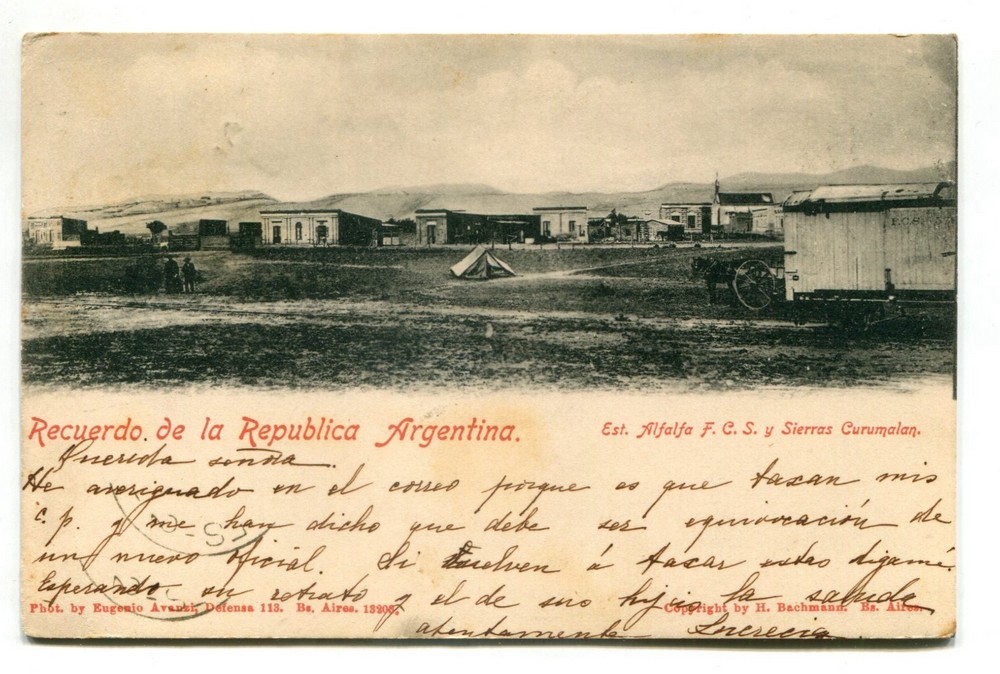 F.C.S.
Recuerdo de la Republica Argentina.
Est. Alfalfa F. C. S. y Sierras Curumalan.
Querida señora.
He averiguado en el correo porque es que taxan mis
c. p. y me han dicho que debe ser equivocación de
un nuevo oficial. Si vuelven á taxar estas digame.
Esperando su retrato y el de sus hijos la saluda
Phot. by Eugenio Avanzi, Defensa 113. Bs. Aires. 13205.
Copyright by H. Bachmann. Bs. Aires.
atentamente Lucrecia.